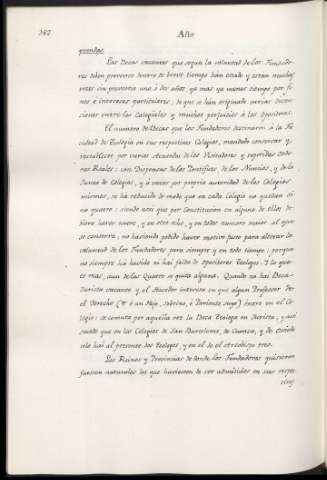 Año
prendas.
Las Becas vacantes que segun la voluntad de los Fundado-
res deben proveerse dentro de breve tiempo han estado y están muchas
veces sin proveerse uno ó dos años, yá mas yá menos tiempo por fi-
nes é intereses particulares; de que se han originado varias disen-
ciones entre los Colegiales y muchos perjuicios á los Opositores.
El numero de Becas que los Fundadores destinaron á la Fa-
cultad de Teología en sus respectivos Colegios, mandado conservar y
restablecer por varios Acuerdos de los Visitadores y repetidas Orde-
nes Reales: con Dispensas de los Pontifices, de los Nuncios, y de la
Junta de Colegios, y á veces por propia autoridad de los Colegios
mismos, se ha reducido de modo que en cada Colegio no quedan si-
no quatro: siendo asi que por Constitucion en alguno de ellos de-
biera haver nueve, y en otro ocho, y en todos numero mayor al que
se conserva, no haviendo podido haver motivo justo para alterar la
voluntad de los Fundadores para siempre y en todo tiempo: porque
no siempre há havido ni hai falta de Opositores Teologos. Y lo que
es mas, aun de las Quatro se quita alguna. Quando no hai Beca
Jurista vacante y el Hacedor interesa en que algun Profesor de
el Derecho (ó un Hijo, sobrino, ó Pariente suyo) éntre en el Co-
legio: se comuta por aquella vez la Beca Teologa en Jurista; y asi
sucede que en los Colegios de San Bartolomé, de Cuenca, y de Oviedo
solo hai al presente dos Teologos, y en el de el Arzobispo tres.
Los Reinos y Provincias de donde los Fundadores quisieron
fuesen naturales los que huviesen de ser admitidos en sus respec-
tivos